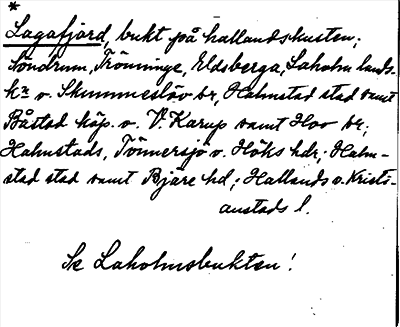 *
Lagafjord, bukt på hallandskusten;
Söndrum, Trönninge, Eldsberga, Laholm lands-
k:a o. Skummeslöv sr, Halmstad stad samt
Båstad köp. o. V. Karup samt Hov sr;
Halmstads, Tönnersjö o. Höks hdr; Halm-
stad stad samt Bjäre hd; Hallands o. Kristi-
anstads l.
Se Laholmsbukten!